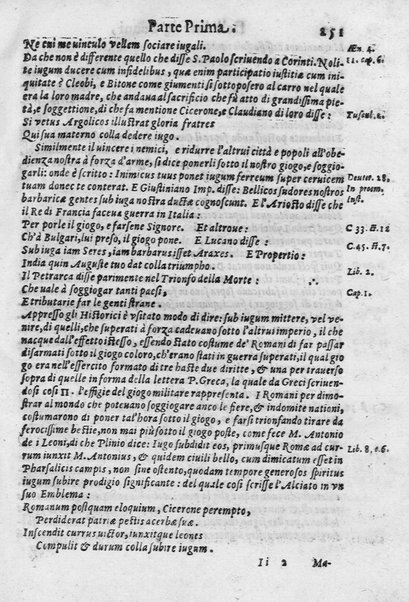 Parte Prima. 251
Ne cui me uinculo vellem sociare iugali. Æn. 4.
Da che non è differente quello che disse S. Paolo scriuendo a Corinti. Noli- 11. cap. 6.
te iugum ducere cum infidelibus, quæ enim participatio iustitiæ cum ini-
quitate è Cleobi, e Bitone come giumenti si sottoposero al carro nel quale
era la loro madre, che andaua al sacrificio che fù atto di grandissima pie-
tà, e soggettione, di che fa mentione Cicerone, e Claudiano di loro disse: Tuscul. 1.
Si vetus Argolicos illustrat gloria fratres
Qui sua materno colla dedere iugo.
Similmente il uincere i nemici, e ridurre l'altrui città e popoli all'obe-
dienza nostra à forza d'arme, si dice ponerli sotto il nostro giogo, e soggio-
garli: onde è scritto: Inimicus tuus ponet iugum ferreum super ceruicem Deuter. 28.
tuam donec te conterat. E Giustiniano Imp. disse: Bellicos sudores nostros In proem.
barbaricæ gentes sub iuga nostra ductæ cognoscunt. E l'Ariosto disse che Inst.
il Re di Francia faceua guerra in Italia:
Per porle il giogo, e farsene Signore. Et altroue: C 33. st. 12
Ch'à Bulgari, lui preso, il giogo pone. E Lucano disse: C. 45. st. 7.
Sub iuga iam Seres, iam barbarus isset Araxes. E Propertio:
India quin Auguste tuo dat colla triumpho. Lib. 2.
Il Petrarca disse parimente nel Trionfo della Morte:
Che uale à soggiogar tanti paesi, Cap. 1.
E tributarie far le genti strane.
Appresso gli Historici è vsitato modo di dire: sub iugum mittere, vel ve-
nire, di quelli, che superati à forza cadeuano sotto l'altrui imperio, il che
nacque dall'effetto istesso, essendo stato costume de' Romani di far passar
disarmati sotto il giogo coloro, ch'erano stati in guerra superati, il qual gio
go era nell'essercito formato di tre haste due diritte, & una per trauerso
sopra di quelle in forma della lettera P. Greca, la quale da Greci scriuen-
dosi cosi Π. l'effigie del giogo militare rappresenta. I Romani per dimo-
strar al mondo che poteuano soggiogare anco le fiere, & indomite nationi,
costumarono di poner tal'hora sotto il giogo, e farsi trionfando tirare da
ferocissime bestie, non mai più sotto il giogo poste, come fece M. Antonio
de i Leoni, di che Plinio dice: Iugo subdidit eos, primusque Romæ ad cur- Lib. 8, c. 6.
rum iunxit M. Antonius, & quidem ciuili bello, cum dimicatum esset in
Pharsalicis campis, non sine ostento, quodam tempore generosos spiritus
iugum subire prodigio significante: del quale cosi scrisse l'Alciato in vn
suo Emblema:
Romanum postquam eloquium, Cicerone perempto,
Perdiderat patriæ pestis acerba suæ.
Inscendit currus uictor, iunxitque leones
Compulit & durum colla subire iugum.
Ii 2 Ma-